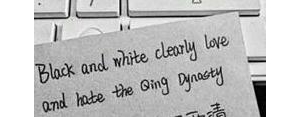 Black and white clearly love
and hate the Qing Dynasty